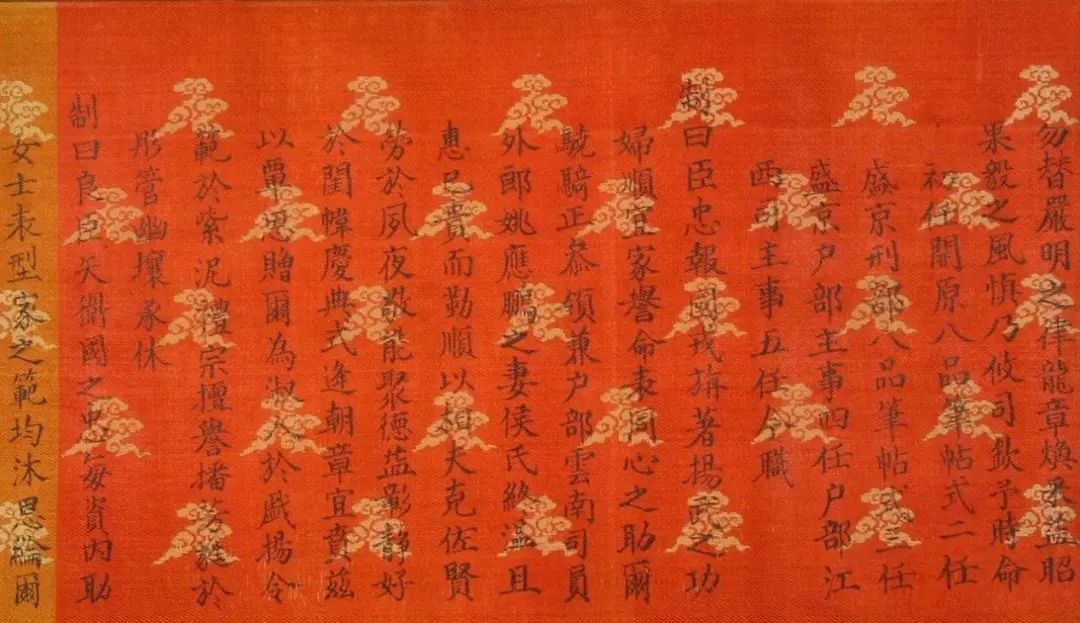 勿替嚴明之律龍章煥采益昭
果毅之風慎乃攸司欽予時命
初任開原八品筆帖式二任
盛京刑部八品筆帖式三任
盛京户部主事四任户部江
西司主事五任今職
制曰臣忠報國戎旃著揚武之功
婦順宜家譽命表同心之助爾
驍騎正叅領兼户部雲南司員
外郎姚應鵬之妻侯氏終温且
惠已貴而勤順以相夫克佐賢
勞於夙夜敬能聚德益彰靜好
於閨幃慶典式逢朝章宜賁茲
以覃恩贈爾為淑人於戲揚令
範於紫泥禮宗擅譽播芳蕤於
彤管幽壤承休
制曰良臣矢衛國之忠每資内助
女士表型家之範均沐恩綸爾